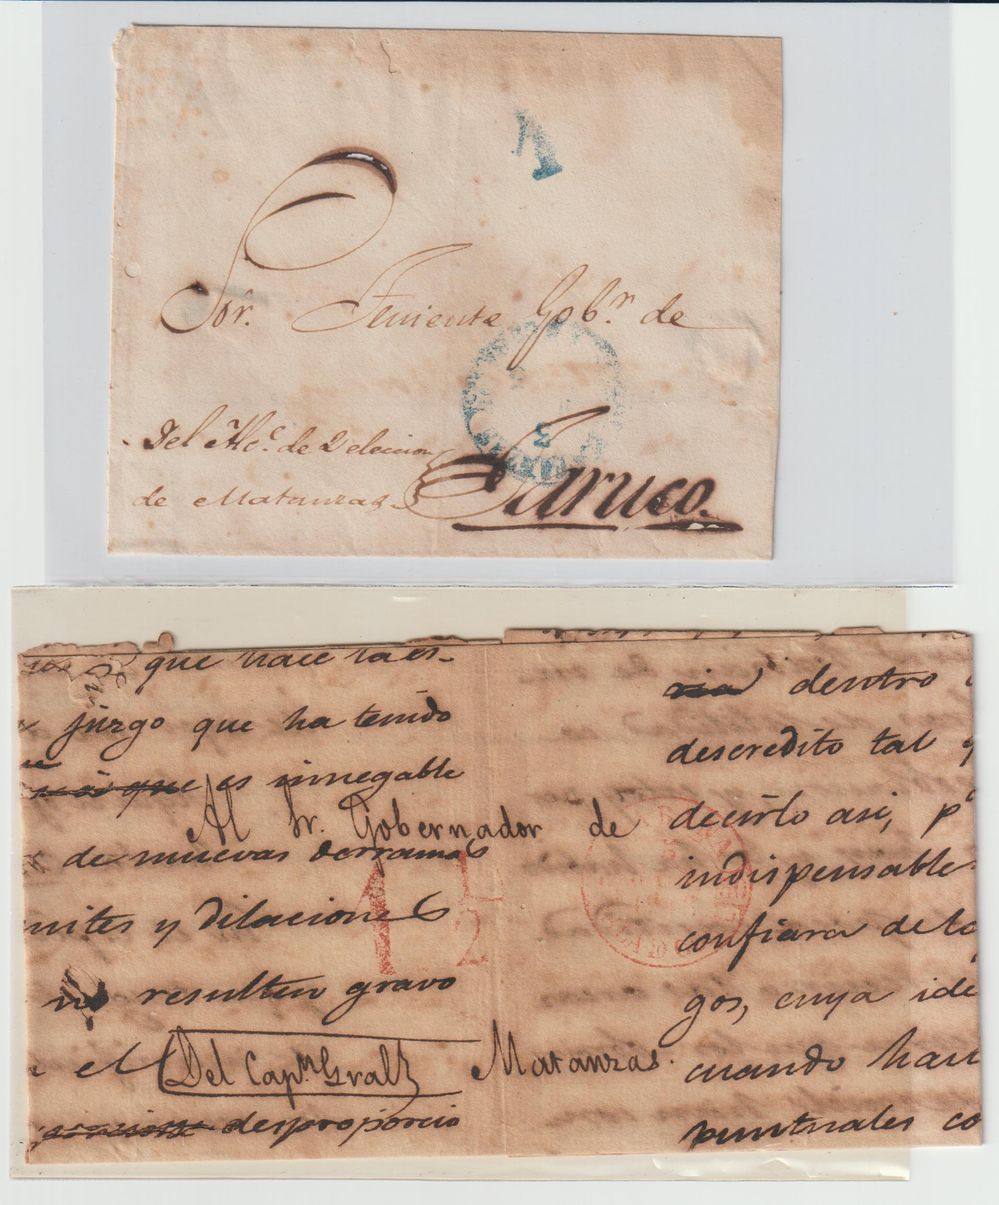 1
Sor. Teniente Gobr. de
3
Del Alce. de 2 eleccion
de Matanzas
Jaruco.
que hace la es-
juzgo que ha tenido
es innegable
Al Sr. Gobernador de
de nuevas derramas
1 1/2
y dilaciones
no resulten gravo
el
Del Capn. Gral
Matanzas.
desproporcio
ria dentro
descredito tal
decirlo asi, p
indispensable
confiara de
gos, cuya ide
cuando han
puntuales co